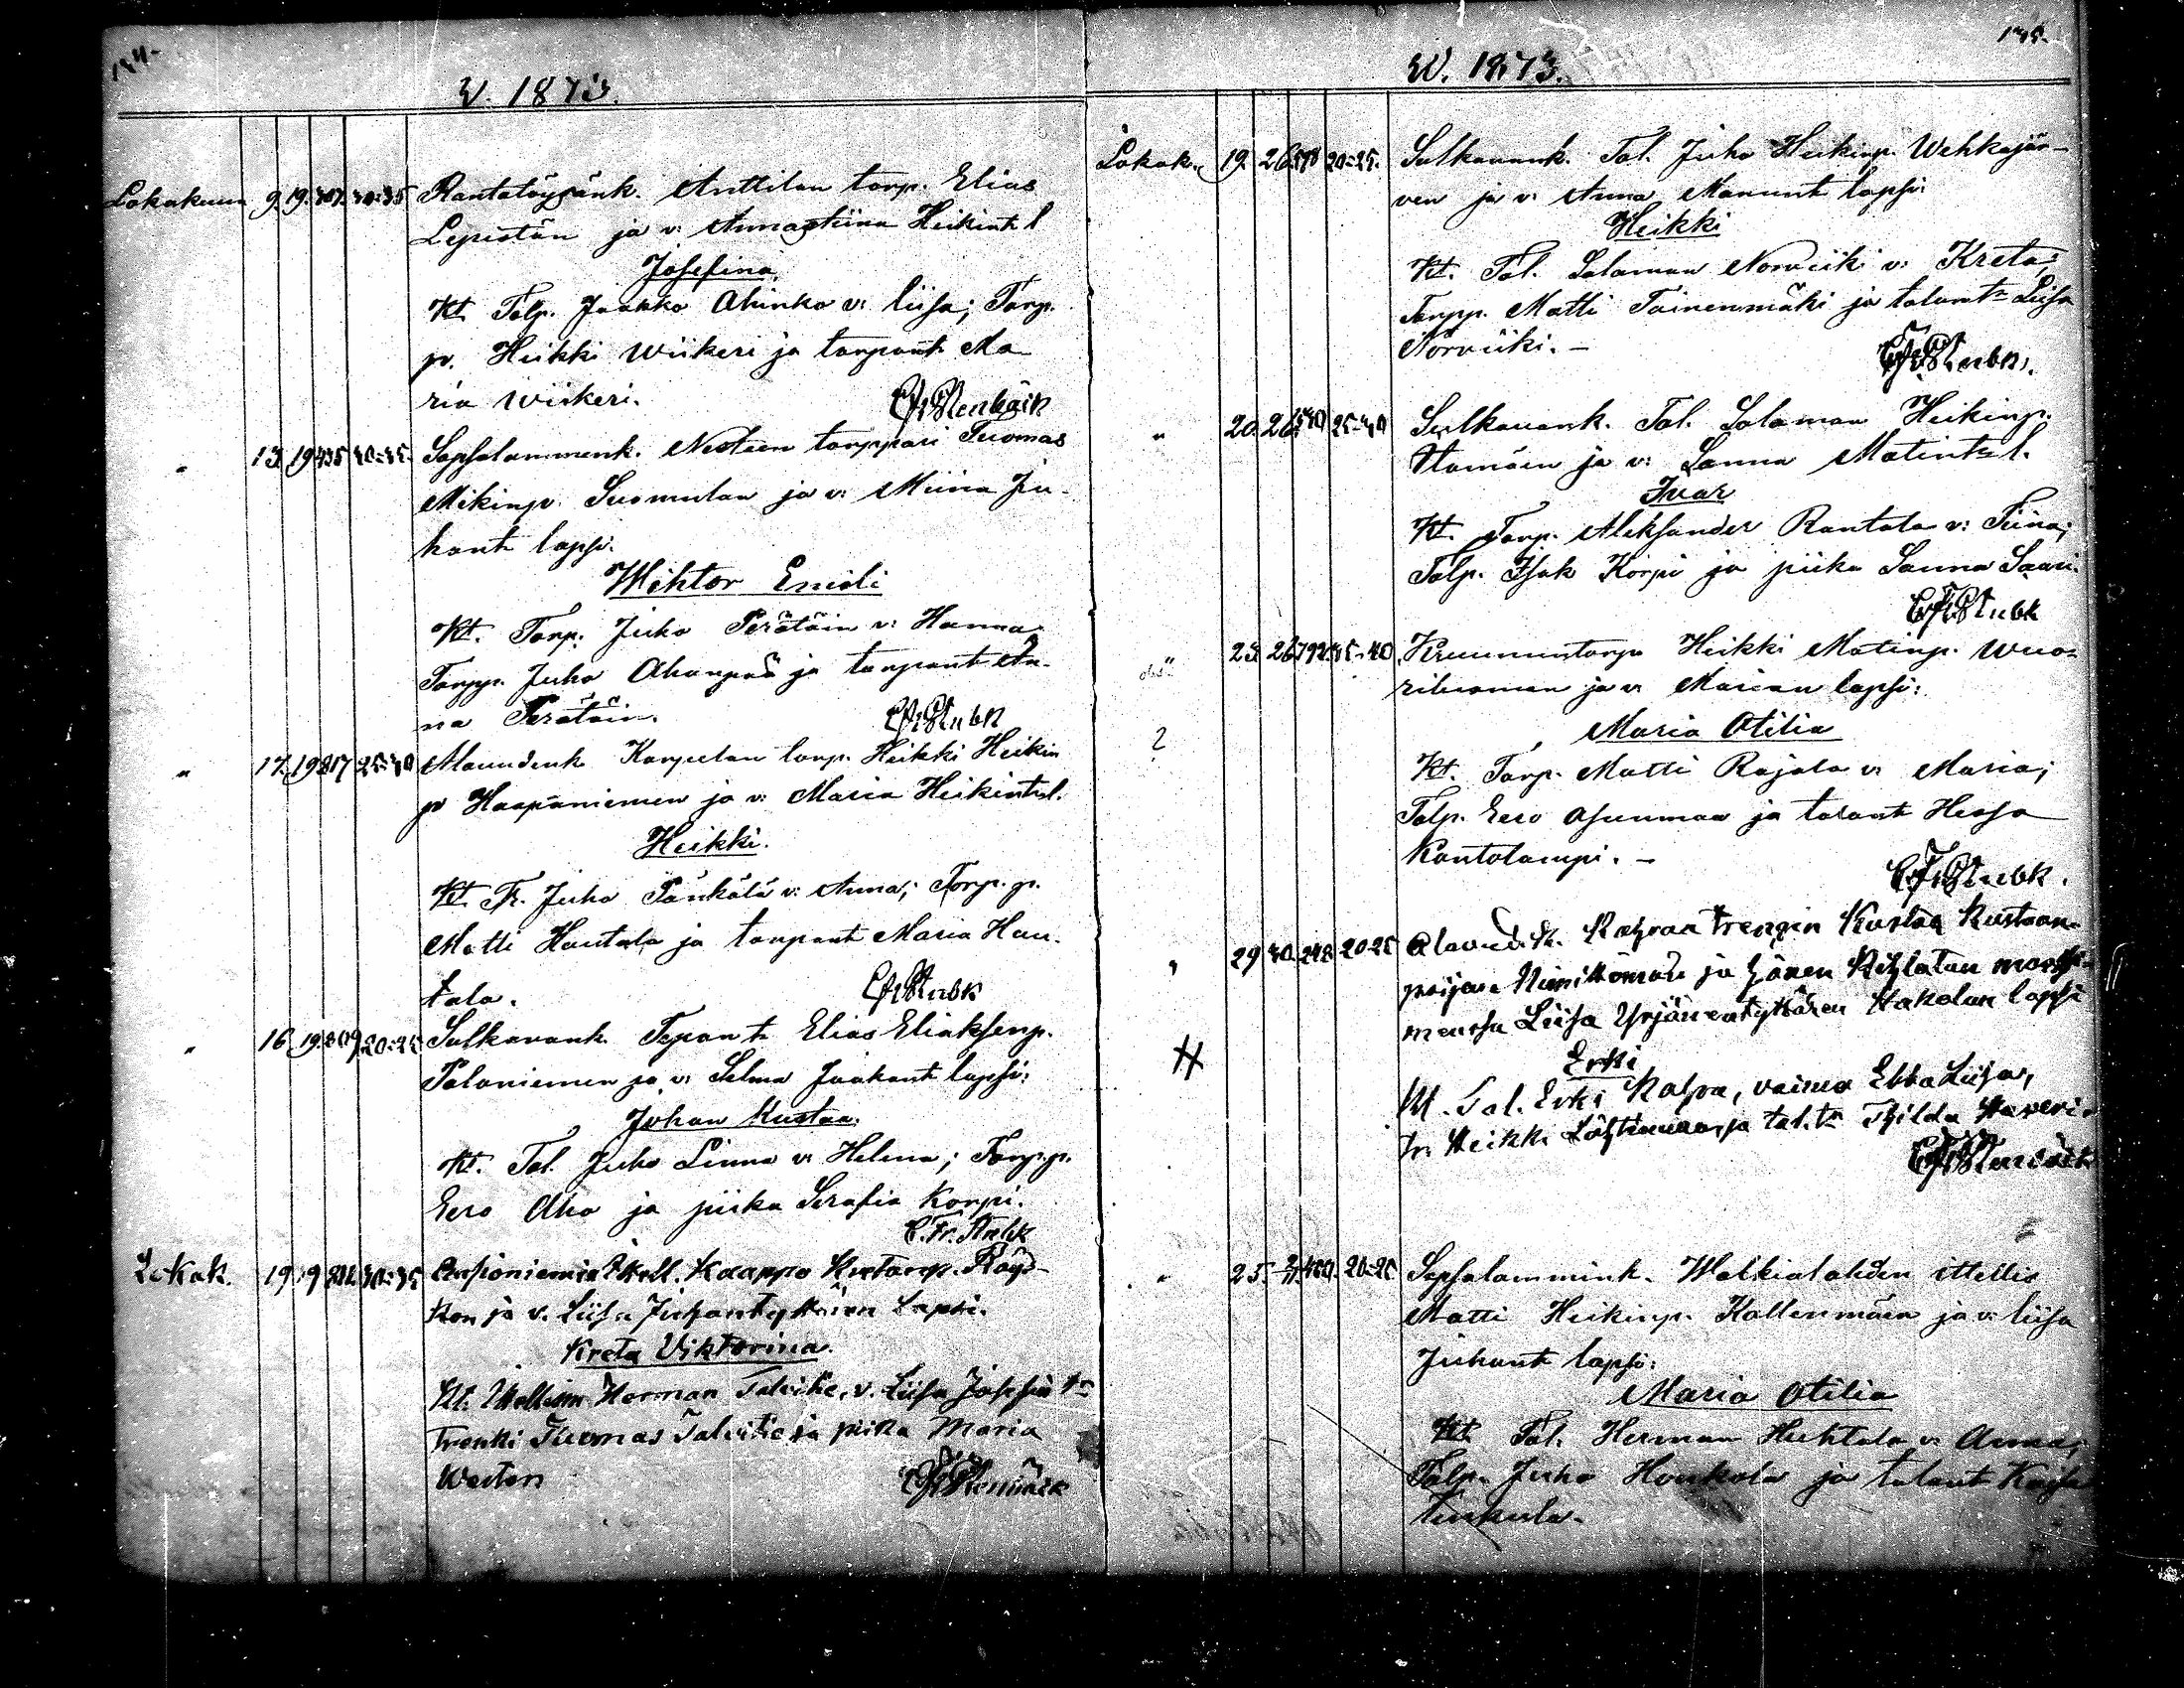 134.
W. 1873.
Lokakuun 9. 19. 707. 30=35 Rantatöysänk. Anttilan torp. Elias
Lepistön ja v: Annastiina Heikint. l
Josefina.
Kt. Talp. Jaakko Ahinko v: Liisa; Torp.
p. Heikki Wiikeri ja torpant. Ma
ria Wiikeri.
" 13. 19. 435 30=35. Sapsalammenk. torppari Tuomas
Mikinp. Suomulan ja v: Miina Ju-
hant. lapsi.
Wihtor Emioli
Kt. Torp. Juho Perätöin v: Hanna,
Torpp. Juho Ahanpää ja torpant. An-
na Perätöin.
" 17. 19. 817 25=30 Alavudenk. Karpulan torp. Heikki Heikin
p Haapaniemen ja v: Maria Heikint. l.
Heikki.
Kt. Tr. Juho Pänkälä v: Anna; Torp. p.
Matti Hautala ja torpant. Maria Hau-
tala.
" 16. 19. 809 20=25 Sulkavank. Elias Eliaksenp.
Paloniemen ja v: Selma Jaakont. lapsi:
Johan Kustaa.
Kt. Tal. Juho Linna v: Helena; Torp.p.
Eero Aho ja piika Serafia Korpi.
C. Fr. Stenbk
Lokak. 19. 19. 30=35 Kaappo Röys-
kon ja v. Liisa Juhontyttären Lapsi.
Kreta Viktorina.
Kt. Herman Talvitie, v. Liisa
Trenki Tuomas Talvitie ja piika Maria
Weston
135.
W. 1873.
Lokak. 19. 26. 578 20=25. Sulkavank. Tal. Juho Heikinp. Wehkajär-
ven ja v: Anna Manunt. lapsi:
Heikki
Kt. Tal. Salaman Norviiki v: Kreta;
Torpp. Matti Toinenmäki ja talont: Liisa
Norviiki. -
" 20. 26. 25=30 Sulkavank. Tal. Salaman Heikinp.
ja v: Sanna Matint: l.
Ivar
Kt. Torp. Aleksander Rantala v: Tiina;
Talp. Isak Korpi ja piika Sanna Saari.
" 23. 26. 792. 35=40 Kruununtorpp Heikki Matinp. Wuo-
riluoman ja v: Marian lapsi:
Maria Otilia
?
Kt. Torp. Matti Rajala v: Maria;
Talp. Eero Asunmaa ja talont. Hessa
Kantolampi. -
" 29 30. 248 20=25 Alavud. k. Trengin Kustaa Kustaan-
poijan Nimittömän ja hänen Kihlatun morsi-
mensa Liisa Yrjänentyttären Hakolan lapsi
Erki
Kt. Tal. Erki Kalpa, vaimo Ebba Liisa,
Tr. Heikki ja tal.tr
" 25. 31. 400. 20=25 Sapsalammink. Walkialahden ittellis
Matti Heikinp. Kallenmäen ja v: Liisa
Juhant. lapsi:
Maria Otilia
Kt. Tal. Herman Huhtala v: Anna;
Talp. Juho Honkola ja talont. Kaisa
Tuskula.